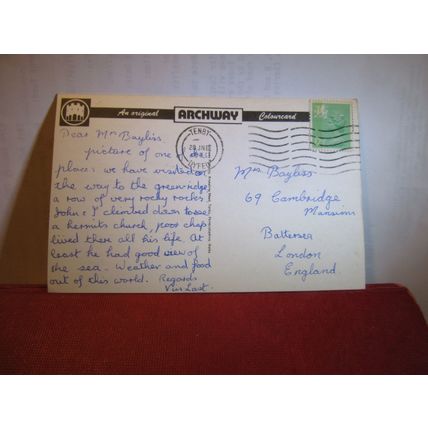 An original ARCHWAY Colourcard
TENBY
DYFED
Dear Mrs Bayliss
picture of one of
places we have visited on
the way to the green ridge
a row of very rocky rocks.
John & I climbed down to see
a hermits church, poor chap
lived there all his life. At
least he had good view of
the sea. Weather and food
out of this world. Regards
Mrs Bayliss
69 Cambridge
Mansions
Battersea
London
England.